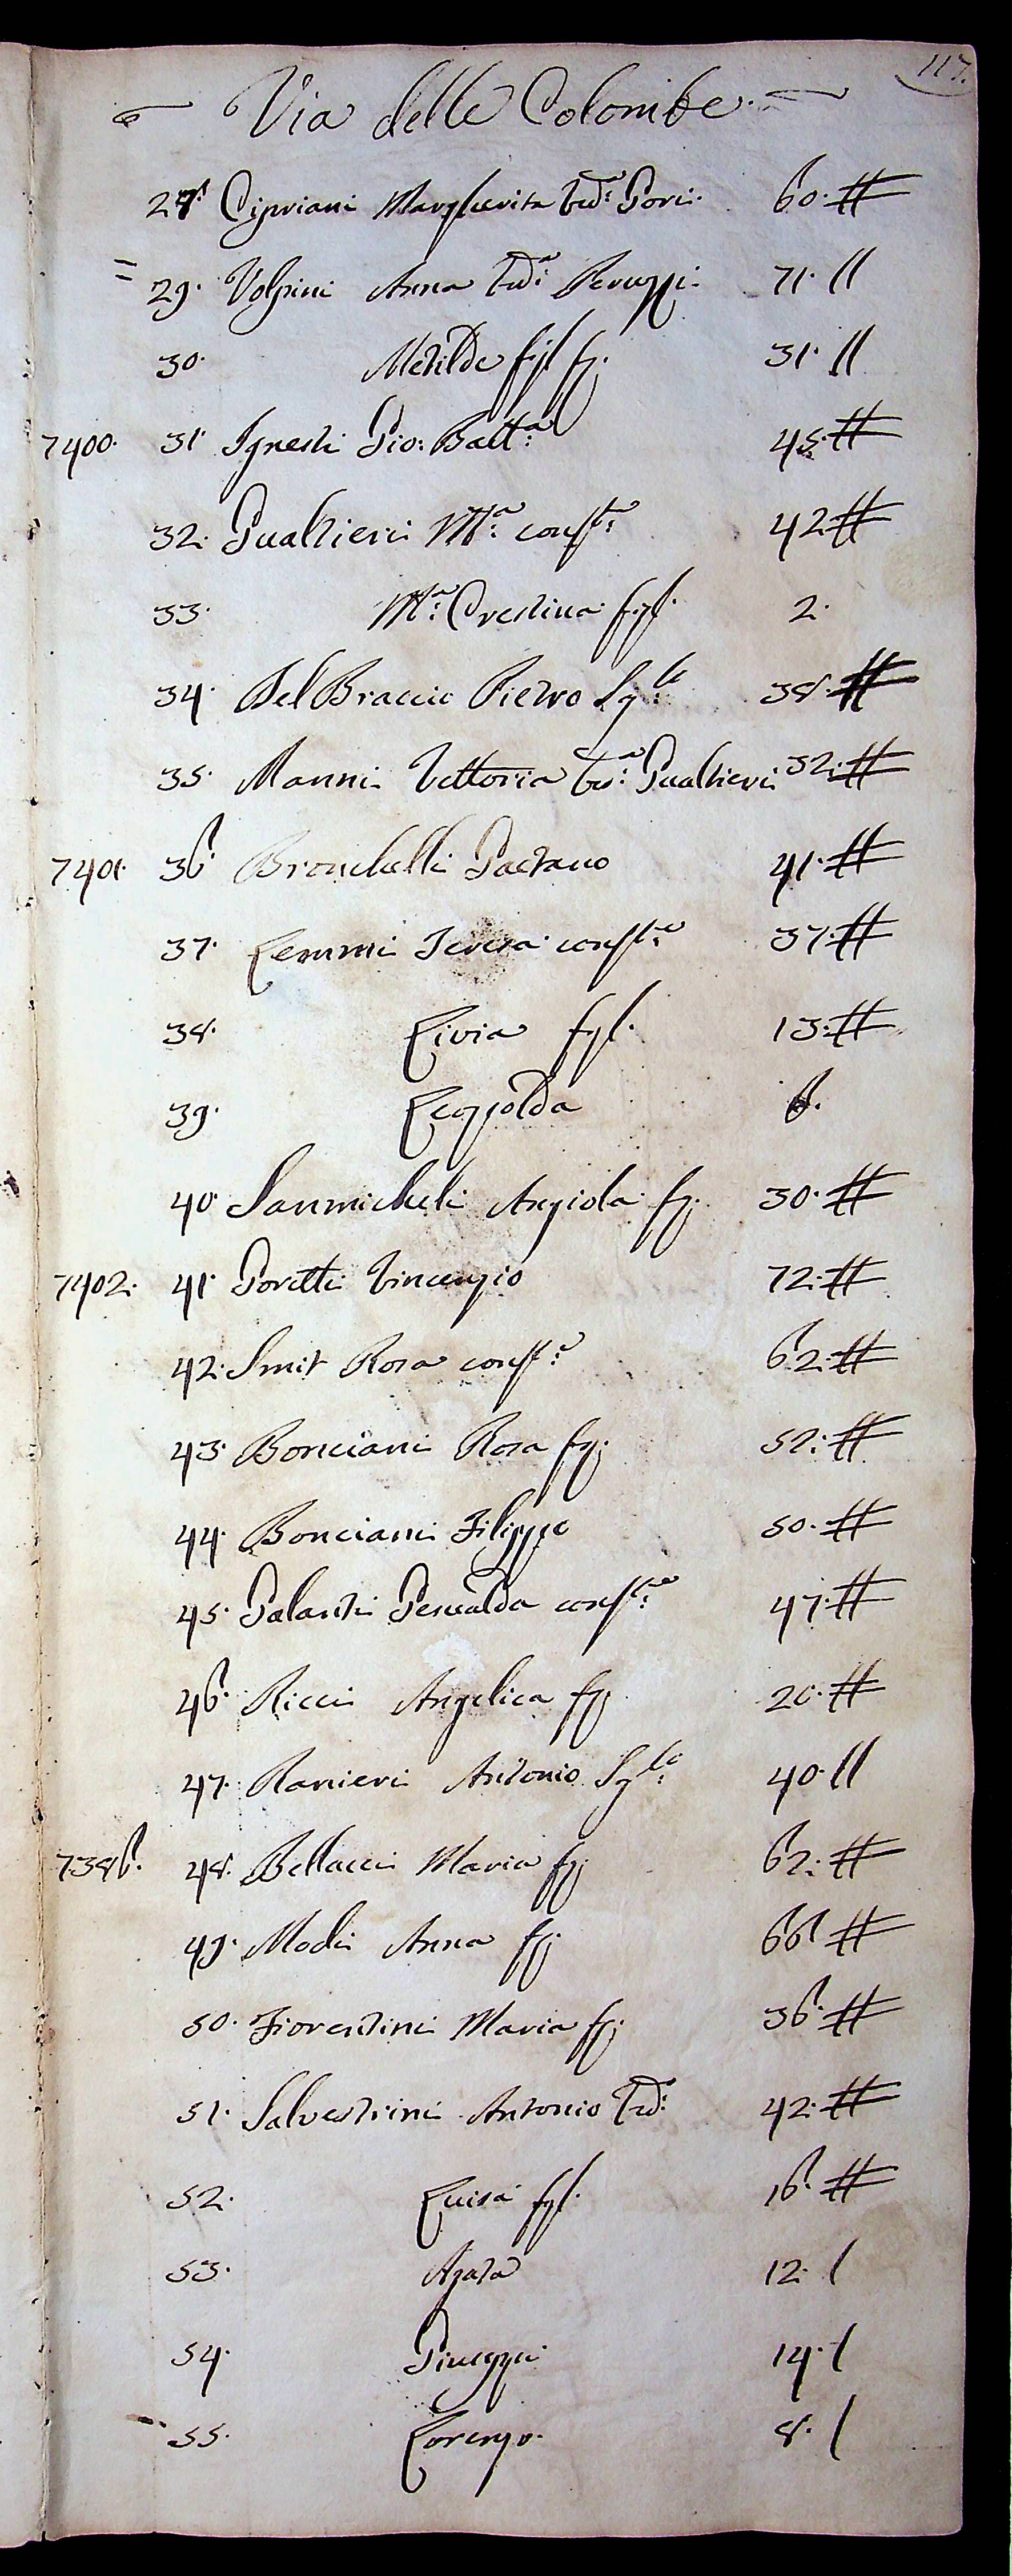 117.
Via delle Colombe.
28. Cipriani Margherita Vedª Gori. 60.
= 29. Volpini Anna Vedª Peruzzi. 71. //
30. Metilde figl. fg. 31. //
7400. 31. Ignesti Gio: Battª 45.
32. Gualtieri Mª consᵗᵉ 42.
33. Mª Crestina figl. 2.
34. Del Braccio Pietro Sgˡᵉ 38.
35. Manni Vettoria Vedª Gualtieri 32.
7401. 36. Bronchelli Gaetano 41.
37. Lemmi Teresa consᵗᵉ 37.
38. Livia figl. 13.
39. Leopolda 6.
40. Sanmicheli Angiola fg. 30.
7402. 41. Goretti Vincenzio 72.
42. Smit Rosa consᵗᵉ 62.
43. Bonciani Rosa fg. 52.
44. Bonciani Filippo 50.
45. Galanti Gesualda consᵗᵉ 47.
46. Ricci Angelica fg. 20.
47. Ranieri Antonio Sgˡᵉ 40. //
7386. 48. Bellacci Maria fg. 62.
49. Modi Anna fg. 66.
50. Fiorentini Maria fg. 36.
51. Salvestrini Antonio Ved: 42.
52. Luisa figl. 16.
53. Agata 12. /
54. Giuseppe 14. /
55. Lorenzo. 8. /